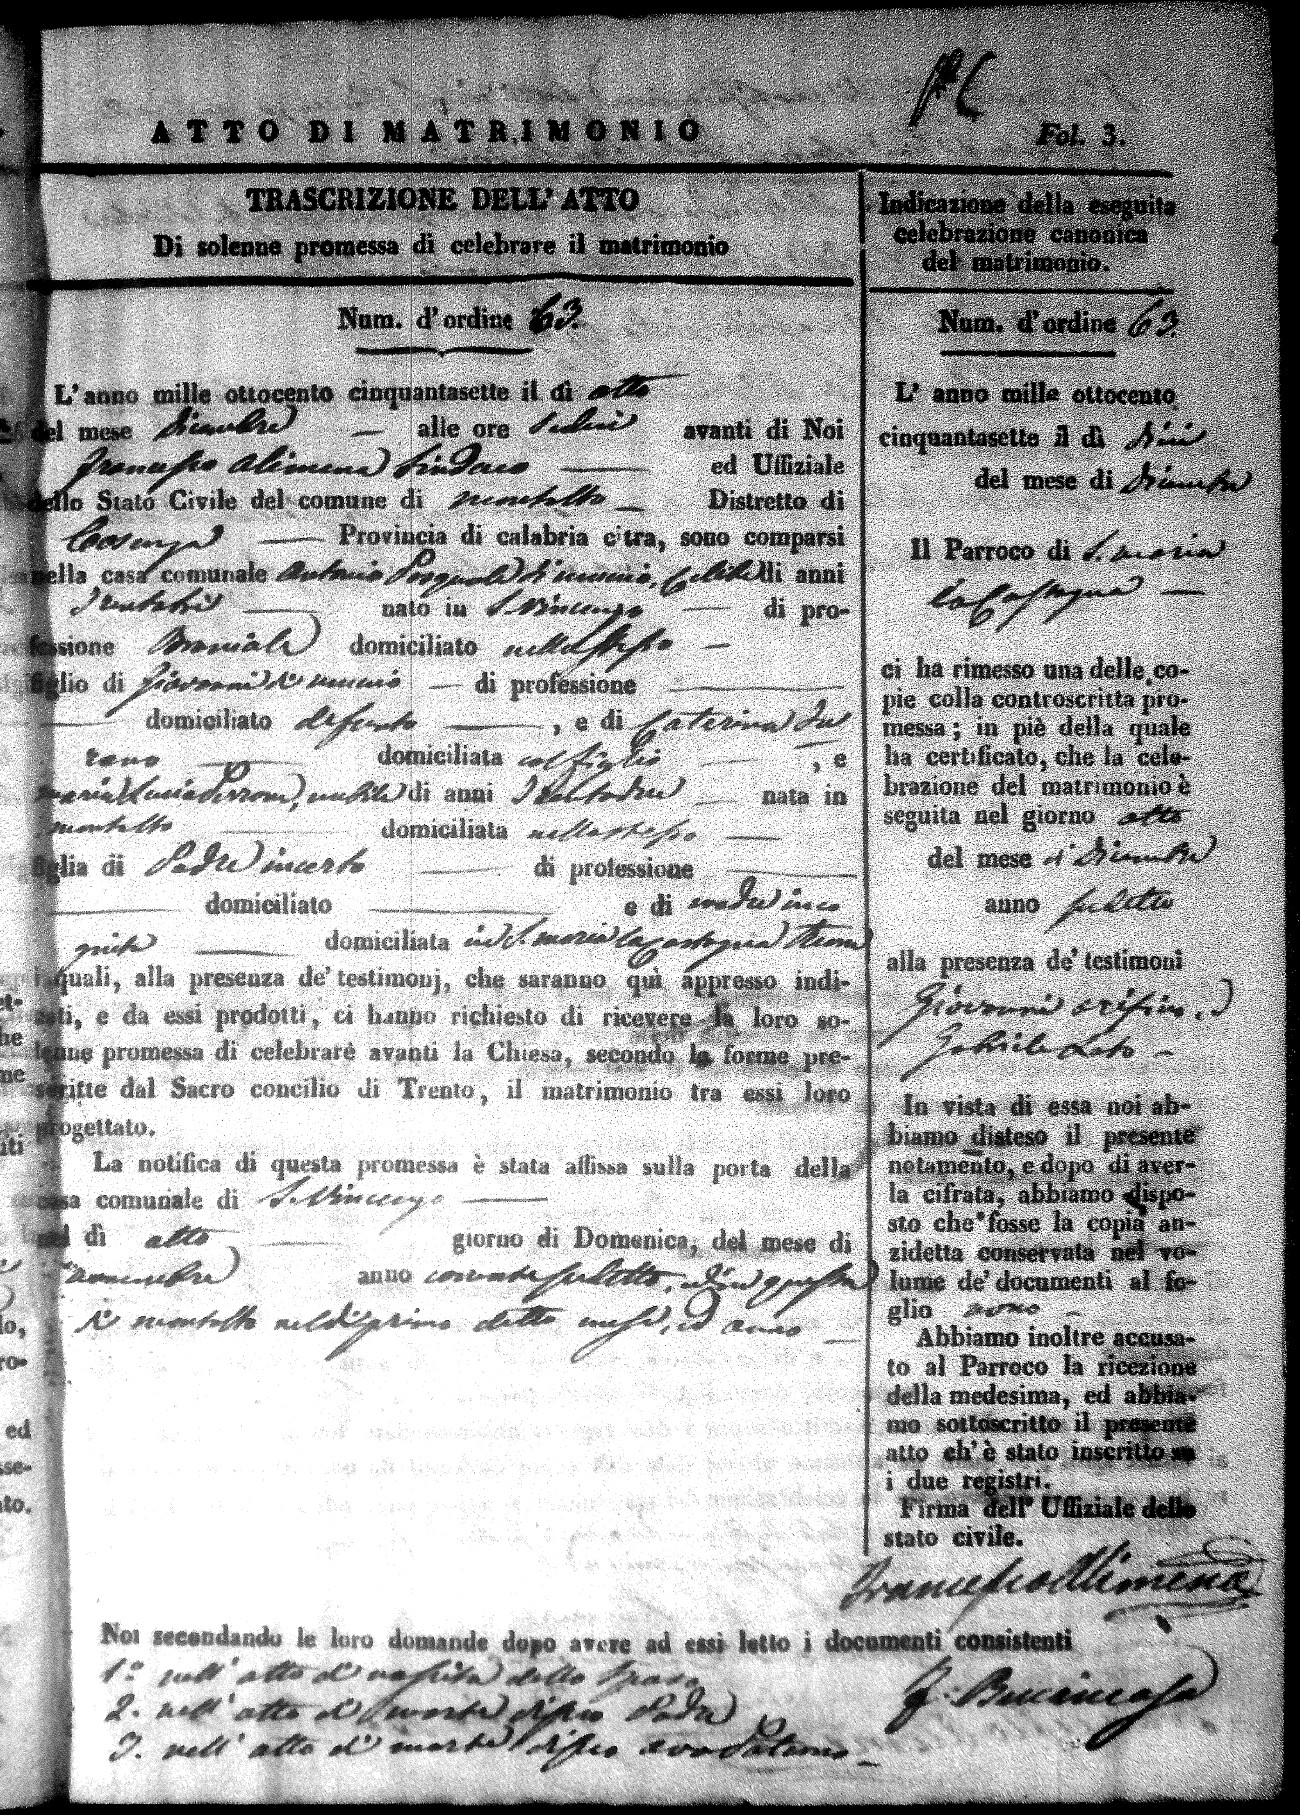 ATTO DI MATRIMONIO
Fol. 3.
TRASCRIZIONE DELL' ATTO
Di solenne promessa di celebrare il matrimonio
Num. d'ordine 63.
L'anno mille ottocento cinquantasette il dì otto
del mese Dicembre — alle ore sedici avanti di Noi
Francesco Alimena Sindaco — ed Uffiziale
dello Stato Civile del comune di Montalto — Distretto di
Cosenza — Provincia di calabria citra, sono comparsi
nella casa comunale Antonio Pasquale di Munno, celibe di anni
— nato in S. Vincenzo — di pro-
fessione Bracciale domiciliato nello stesso —
figlio di Giovanni di Munno — di professione —
— domiciliato defunto —, e di Caterina Du
rano — domiciliata col figlio — , e
Maria Lucia Perrone, nubile di anni — nata in
Montalto — domiciliata nello stesso —
figlia di Padre incerto — di professione —
— domiciliato — e di madre inco
gnita — domiciliata in S. Maria la Castagna
i quali, alla presenza de' testimonj, che saranno quì appresso indi-
cati, e da essi prodotti, ci hanno richiesto di ricevere la loro so-
lenne promessa di celebrare avanti la Chiesa, secondo le forme pre-
scritte dal Sacro concilio di Trento, il matrimonio tra essi loro
progettato.
La notifica di questa promessa è stata affissa sulla porta della
casa comunale di S. Vincenzo —
nel dì otto — giorno di Domenica, del mese di
novembre anno corrente suddetto, ed in questa
di Montalto nel dì primo detto mese, ed anno —
Noi secondando le loro domande dopo avere ad essi letto i documenti consistenti
1.° nell' atto di nascita dello sposo
2. nell' atto di morte di suo Padre
3. nell' atto di morte di suo avo Paterno —
Indicazione della eseguita
celebrazione canonica
del matrimonio.
Num. d'ordine 63.
L' anno mille ottocento
cinquantasette il dì dieci
del mese di Dicembre
Il Parroco di S. Maria
la Castagna —
ci ha rimesso una delle co-
pie colla controscritta pro-
messa; in piè della quale
ha certificato, che la cele-
brazione del matrimonio è
seguita nel giorno otto
del mese di Dicembre
anno suddetto
alla presenza de' testimoni
Giovanni
Gabriele —
In vista di essa noi ab-
biamo disteso il presente
notamento, e dopo di aver-
la cifrata, abbiamo dispo-
sto che fosse la copia an-
zidetta conservata nel vo-
lume de' documenti al fo-
glio nono —
Abbiamo inoltre accusa-
to al Parroco la ricezione
della medesima, ed abbia-
mo sottoscritto il presente
atto ch' è stato inscritto su
i due registri.
Firma dell' Uffiziale dello
stato civile.
Francesco Alimena